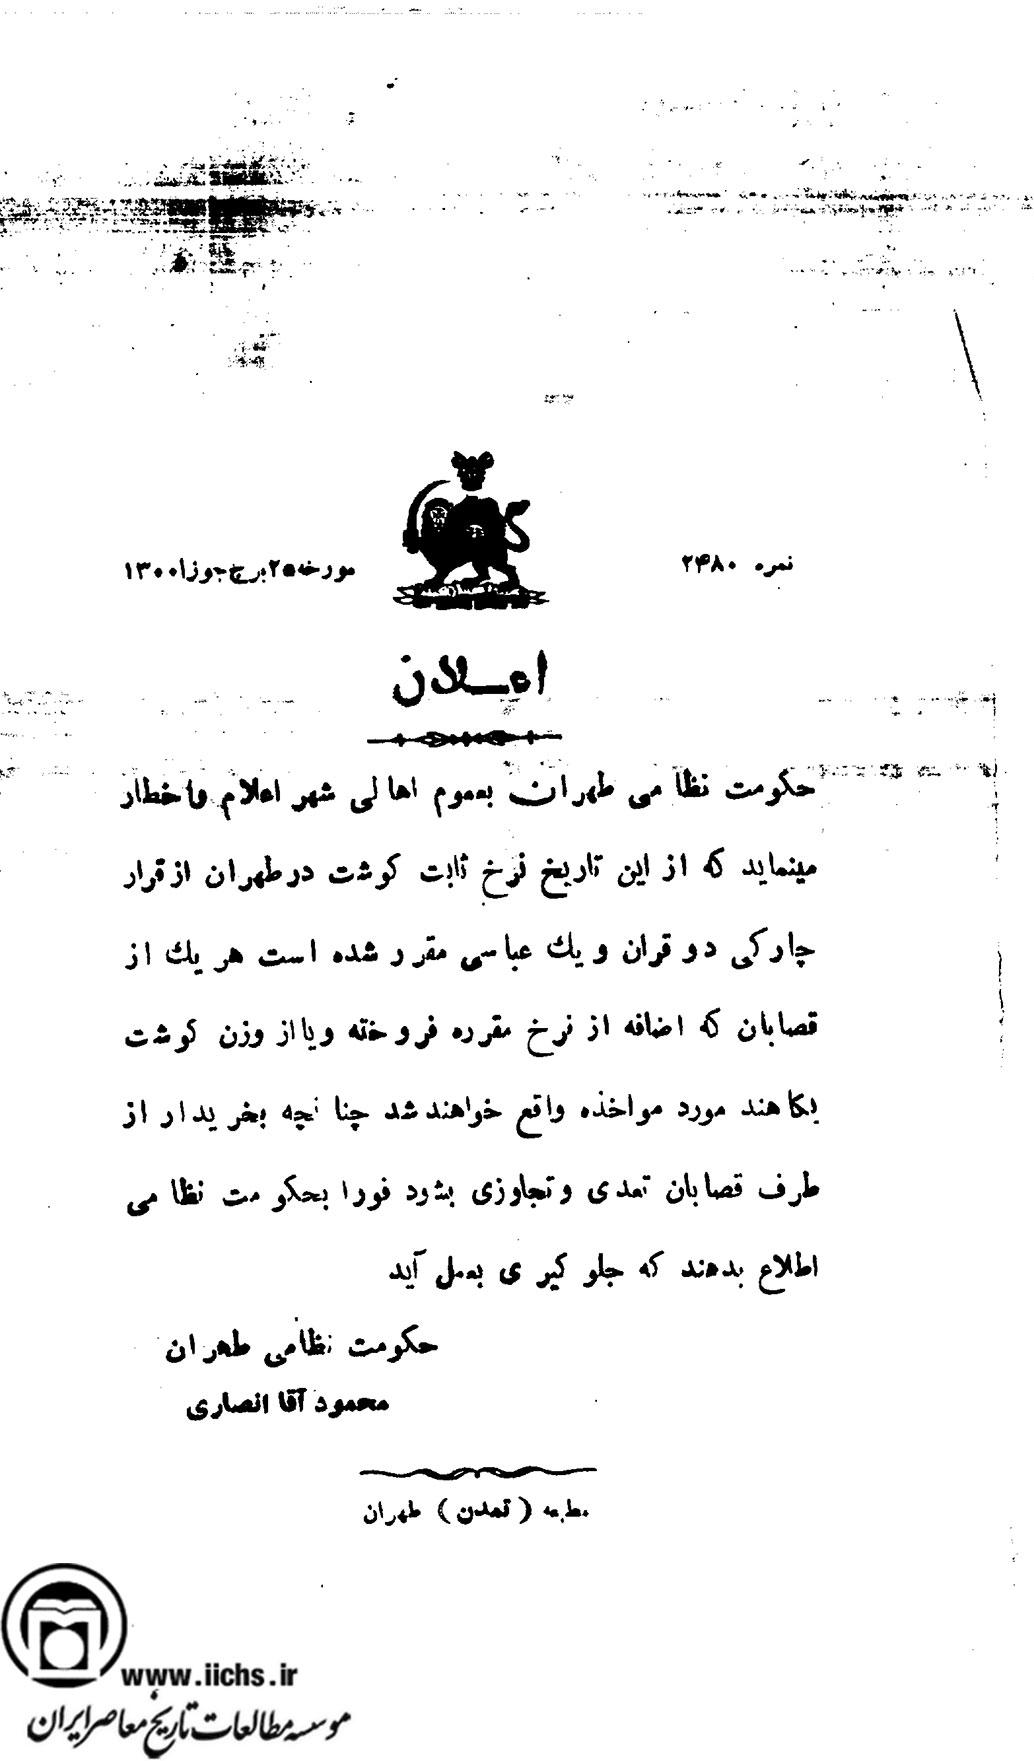 نمره ۲۴۸۰
مورخه ۲۵ برج جوزا ۱۳۰۰
اعـلان
حکومت نظامی طهران بعموم اهالی شهر اعلام واخطار
مینماید که از این تاریخ نرخ ثابت کوشت در طهران از قرار
چارکی دو قران و یك عباسی مقرر شده است هر یك از
قصابان که اضافه از نرخ مقرره فروخته ویا از وزن کوشت
بکاهند مورد مواخذه واقع خواهند شد چنانچه بخریدار از
طرف قصابان تعدی وتجاوزی بشود فورا بحکومت نظامی
اطلاع بدهند که جلوکیری بعمل آید
حکومت نظامی طهران
محمود آقا انصاری
مطبعه ( تمدن ) طهران
www.iichs.ir
موسسه مطالعات تاریخ معاصر ایران